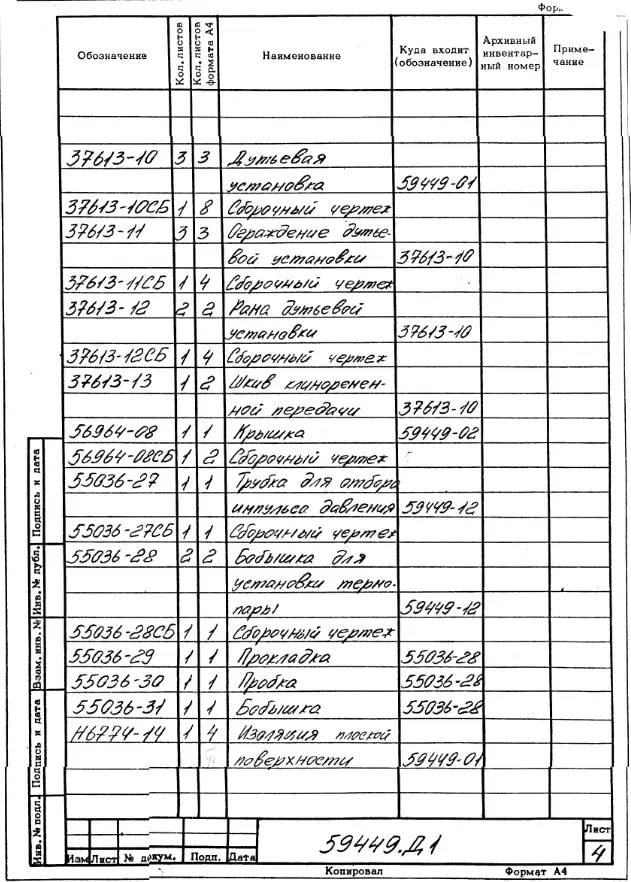 Обозначение Кол. листов Кол. листов формата А4 Наименование Куда входит (обозначение) Архивный инвентар- ный номер Приме- чание
37613-10 3 3 Дутьевая
установка 59449-01
37613-10СБ 1 8 Сборочный чертеж
37613-11 3 3 Ограждение дутье-
вой установки 37613-10
37613-11СБ 1 4 Сборочный чертеж
37613-12 2 2 Рама дутьевой
установки 37613-10
37613-12СБ 1 4 Сборочный чертеж
37613-13 1 2 Шкив клиноремен-
ной передачи 37613-10
56964-08 1 1 Крышка 59449-02
56964-08СБ 1 2 Сборочный чертеж
55036-27 1 1 Трубка для отбора
импульса давления 59449-12
55036-27СБ 1 1 Сборочный чертеж
55036-28 2 2 Бобышка для
установки термо-
пары 59449-12
55036-28СБ 1 1 Сборочный чертеж
55036-29 1 1 Прокладка 55036-28
55036-30 1 1 Пробка 55036-28
55036-31 1 1 Бобышка 55036-28
Н6774-14 1 4 Изоляция плоской
поверхности 59449-01
Подпись и дата
Инв. № дубл.
Взам. инв. №
Подпись и дата
Инв. № подл.
Изм Лист № докум. Подп. Дата
59449.Д1
Лист
4
Копировал Формат А4